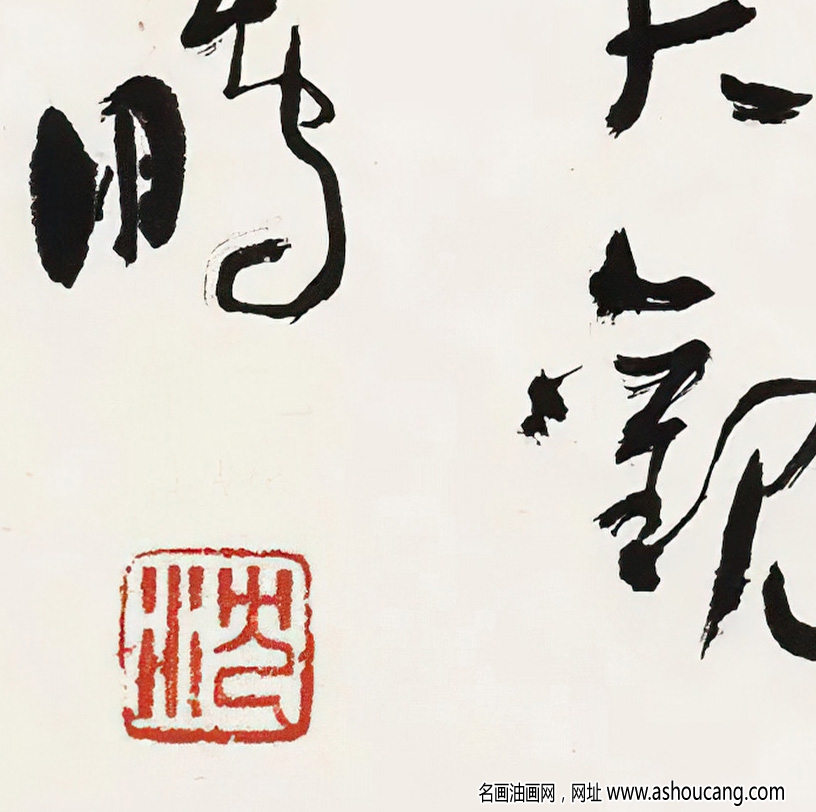 觀
鵬
沈
名画油画网，网址 www.ashoucang.com